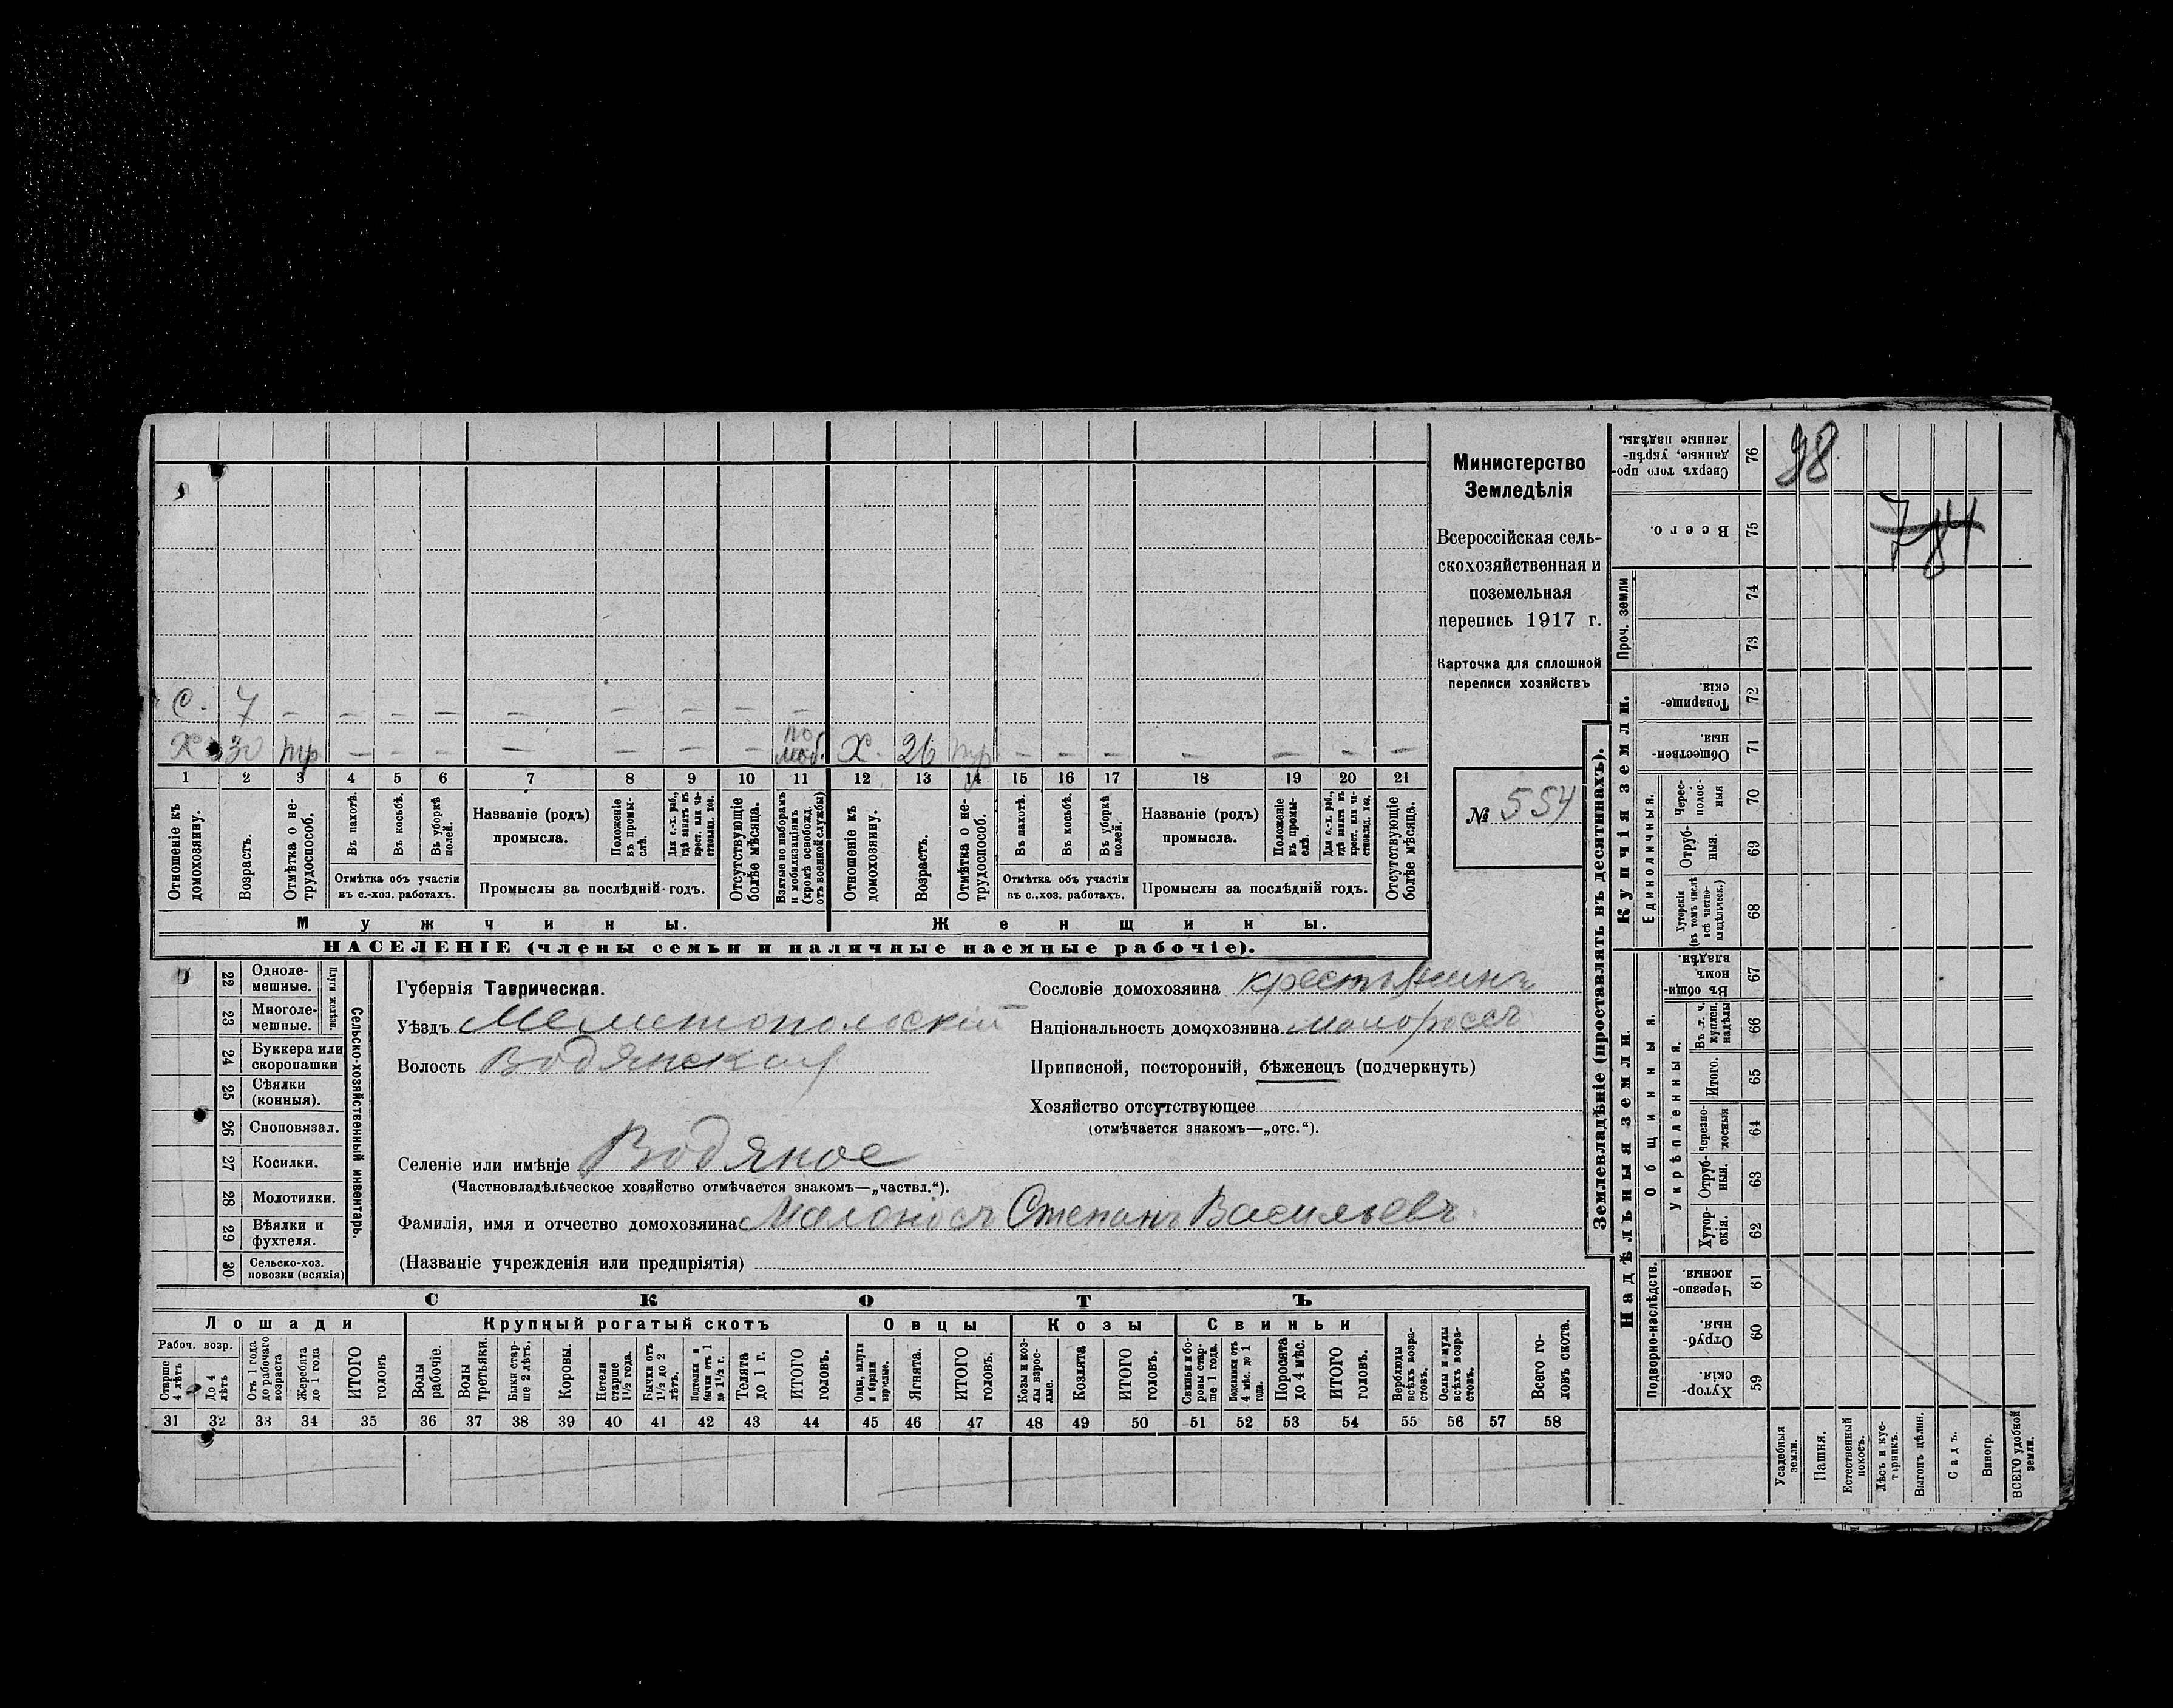 С. 7 – – – – – – – – –
Х. 30 тр. – – – – – – – по моб. Х. 26 тр. – – – – – – –
1 2 3 4 5 6 7 8 9 10 11 12 13 14 15 16 17 18 19 20 21
Отношеніе къ домохозяину.
Возрастъ.
Отмѣтка о не-трудоспособ.
Въ пахотѣ.
Въ косьбѣ.
Въ уборкѣ полей.
Отмѣтка объ участіи
въ с.-хоз. работахъ.
Названіе (родъ)
промысла.
Положеніе въ промы-слѣ.
Для с.-х. раб., гдѣ занятъ въ крест. или ча-стновлад. хоз.
Промыслы за послѣдній годъ.
Отсутствующіе болѣе мѣсяца.
Взятые по наборамъ и мобилизаціямъ (кромѣ освобожд. отъ военной службы)
Отношеніе къ домохозяину.
Возрастъ.
Отмѣтка о не-трудоспособ.
Въ пахотѣ.
Въ косьбѣ.
Въ уборкѣ полей.
Отмѣтка объ участіи
въ с.-хоз. работахъ.
Названіе (родъ)
промысла.
Положеніе въ промы-слѣ.
Для с.-х. раб., гдѣ занята въ крест. или ча-стновлад. хоз.
Промыслы за послѣдній годъ.
Отсутствующіе болѣе мѣсяца.
Мужчины. Женщины.
НАСЕЛЕНІЕ (члены семьи и наличные наемные рабочіе).
Министерство
Земледѣлія
Всероссійская сель-
скохозяйственная и
поземельная
перепись 1917 г.
Карточка для сплошной
переписи хозяйствъ
№ 554
22 Одноле-мешные.
23 Многоле-мешные.
Плуги желѣзн.
24 Буккера или скоропашки
25 Сѣялки (конныя).
26 Сноповязал.
27 Косилки.
28 Молотилки.
29 Вѣялки и фухтеля.
30 Сельско-хоз. повозки (всякія)
Сельско-хозяйственный инвентарь.
Губернія Таврическая.
Уѣздъ Мелитопольскій
Волость Водянская
Селеніе или имѣніе Водяное
(Частновладѣльческое хозяйство отмѣчается знакомъ—„частвл.“).
Фамилія, имя и отчество домохозяина Малоносъ Степанъ Васильевъ.
(Названіе учрежденія или предпріятія)
Сословіе домохозяина крестьянинъ
Національность домохозяина малороссъ
Приписной, посторонній, бѣженецъ (подчеркнуть)
Хозяйство отсутствующее
(отмѣчается знакомъ—„отс.“).
СКОТЪ
Лошади Крупный рогатый скотъ Овцы Козы Свиньи
Рабоч. возр.
Старше 4 лѣтъ
До 4 лѣтъ
Отъ 1 года до рабочаго возраста
Жеребята до 1 года
ИТОГО головъ
Волы рабочіе.
Волы третьяки.
Быки стар-ше 2 лѣтъ.
Коровы.
Нетели старше 1½ года.
Бычки отъ 1½ до 2 лѣтъ.
Подтелки и бычки отъ 1 до 1½ г.
Телята до 1 г.
ИТОГО головъ.
Овцы, валухи и бараны взрослые.
Ягнята.
ИТОГО головъ.
Козы и коз-лы взрос-лые.
Козлята
ИТОГО головъ.
Свиньи и бо-ровы стар-ше 1 года.
Подсвинки отъ 4 мѣс. до 1 года.
Поросята до 4 мѣс.
ИТОГО головъ.
Верблюды всѣхъ возра-стовъ.
Ослы и мулы всѣхъ возра-стовъ.
Всего го-ловъ скота.
31 32 33 34 35 36 37 38 39 40 41 42 43 44 45 46 47 48 49 50 51 52 53 54 55 56 57 58
Землевладѣніе (проставлять въ десятинахъ).
Надѣльныя земли. Купчія земли. Проч. земли
Подворно-наслѣдств.
Общинныя.
Укрѣпленныя.
Единоличныя.
Сверхъ того про-данные, укрѣп-ленные надѣлы. 76
Всего. 75
74
73
Товарище-скія. 72
Обществен-ныя. 71
Черес-полос-ныя 70
Отруб-ныя. 69
Хуторскія (въ томъ числѣ всѣ частно-владѣльческ.) 68
Въ общи-номъ владѣн. 67
Въ т. ч. куплен. надѣлы 66
Итого. 65
Черезпо-лосныя 64
Отруб-ныя. 63
Хутор-скія. 62
Черезпо-лосныя. 61
Отруб-ныя. 60
Хутор-скія. 59
Усадебныя земли.
Пашня.
Естественный покосъ.
Лѣсъ и кус-тарникъ.
Выгонъ цѣлин.
Садъ.
Виногр.
ВСЕГО удобной земли.
98
784